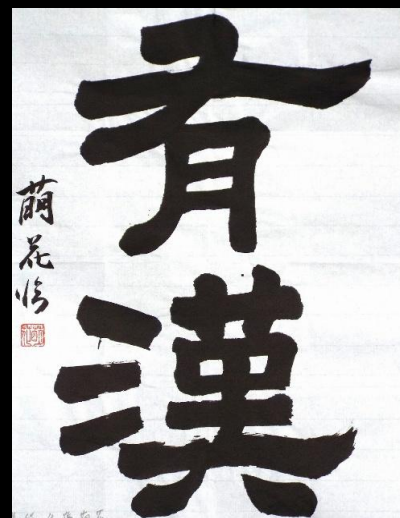 有漢
萠花臨